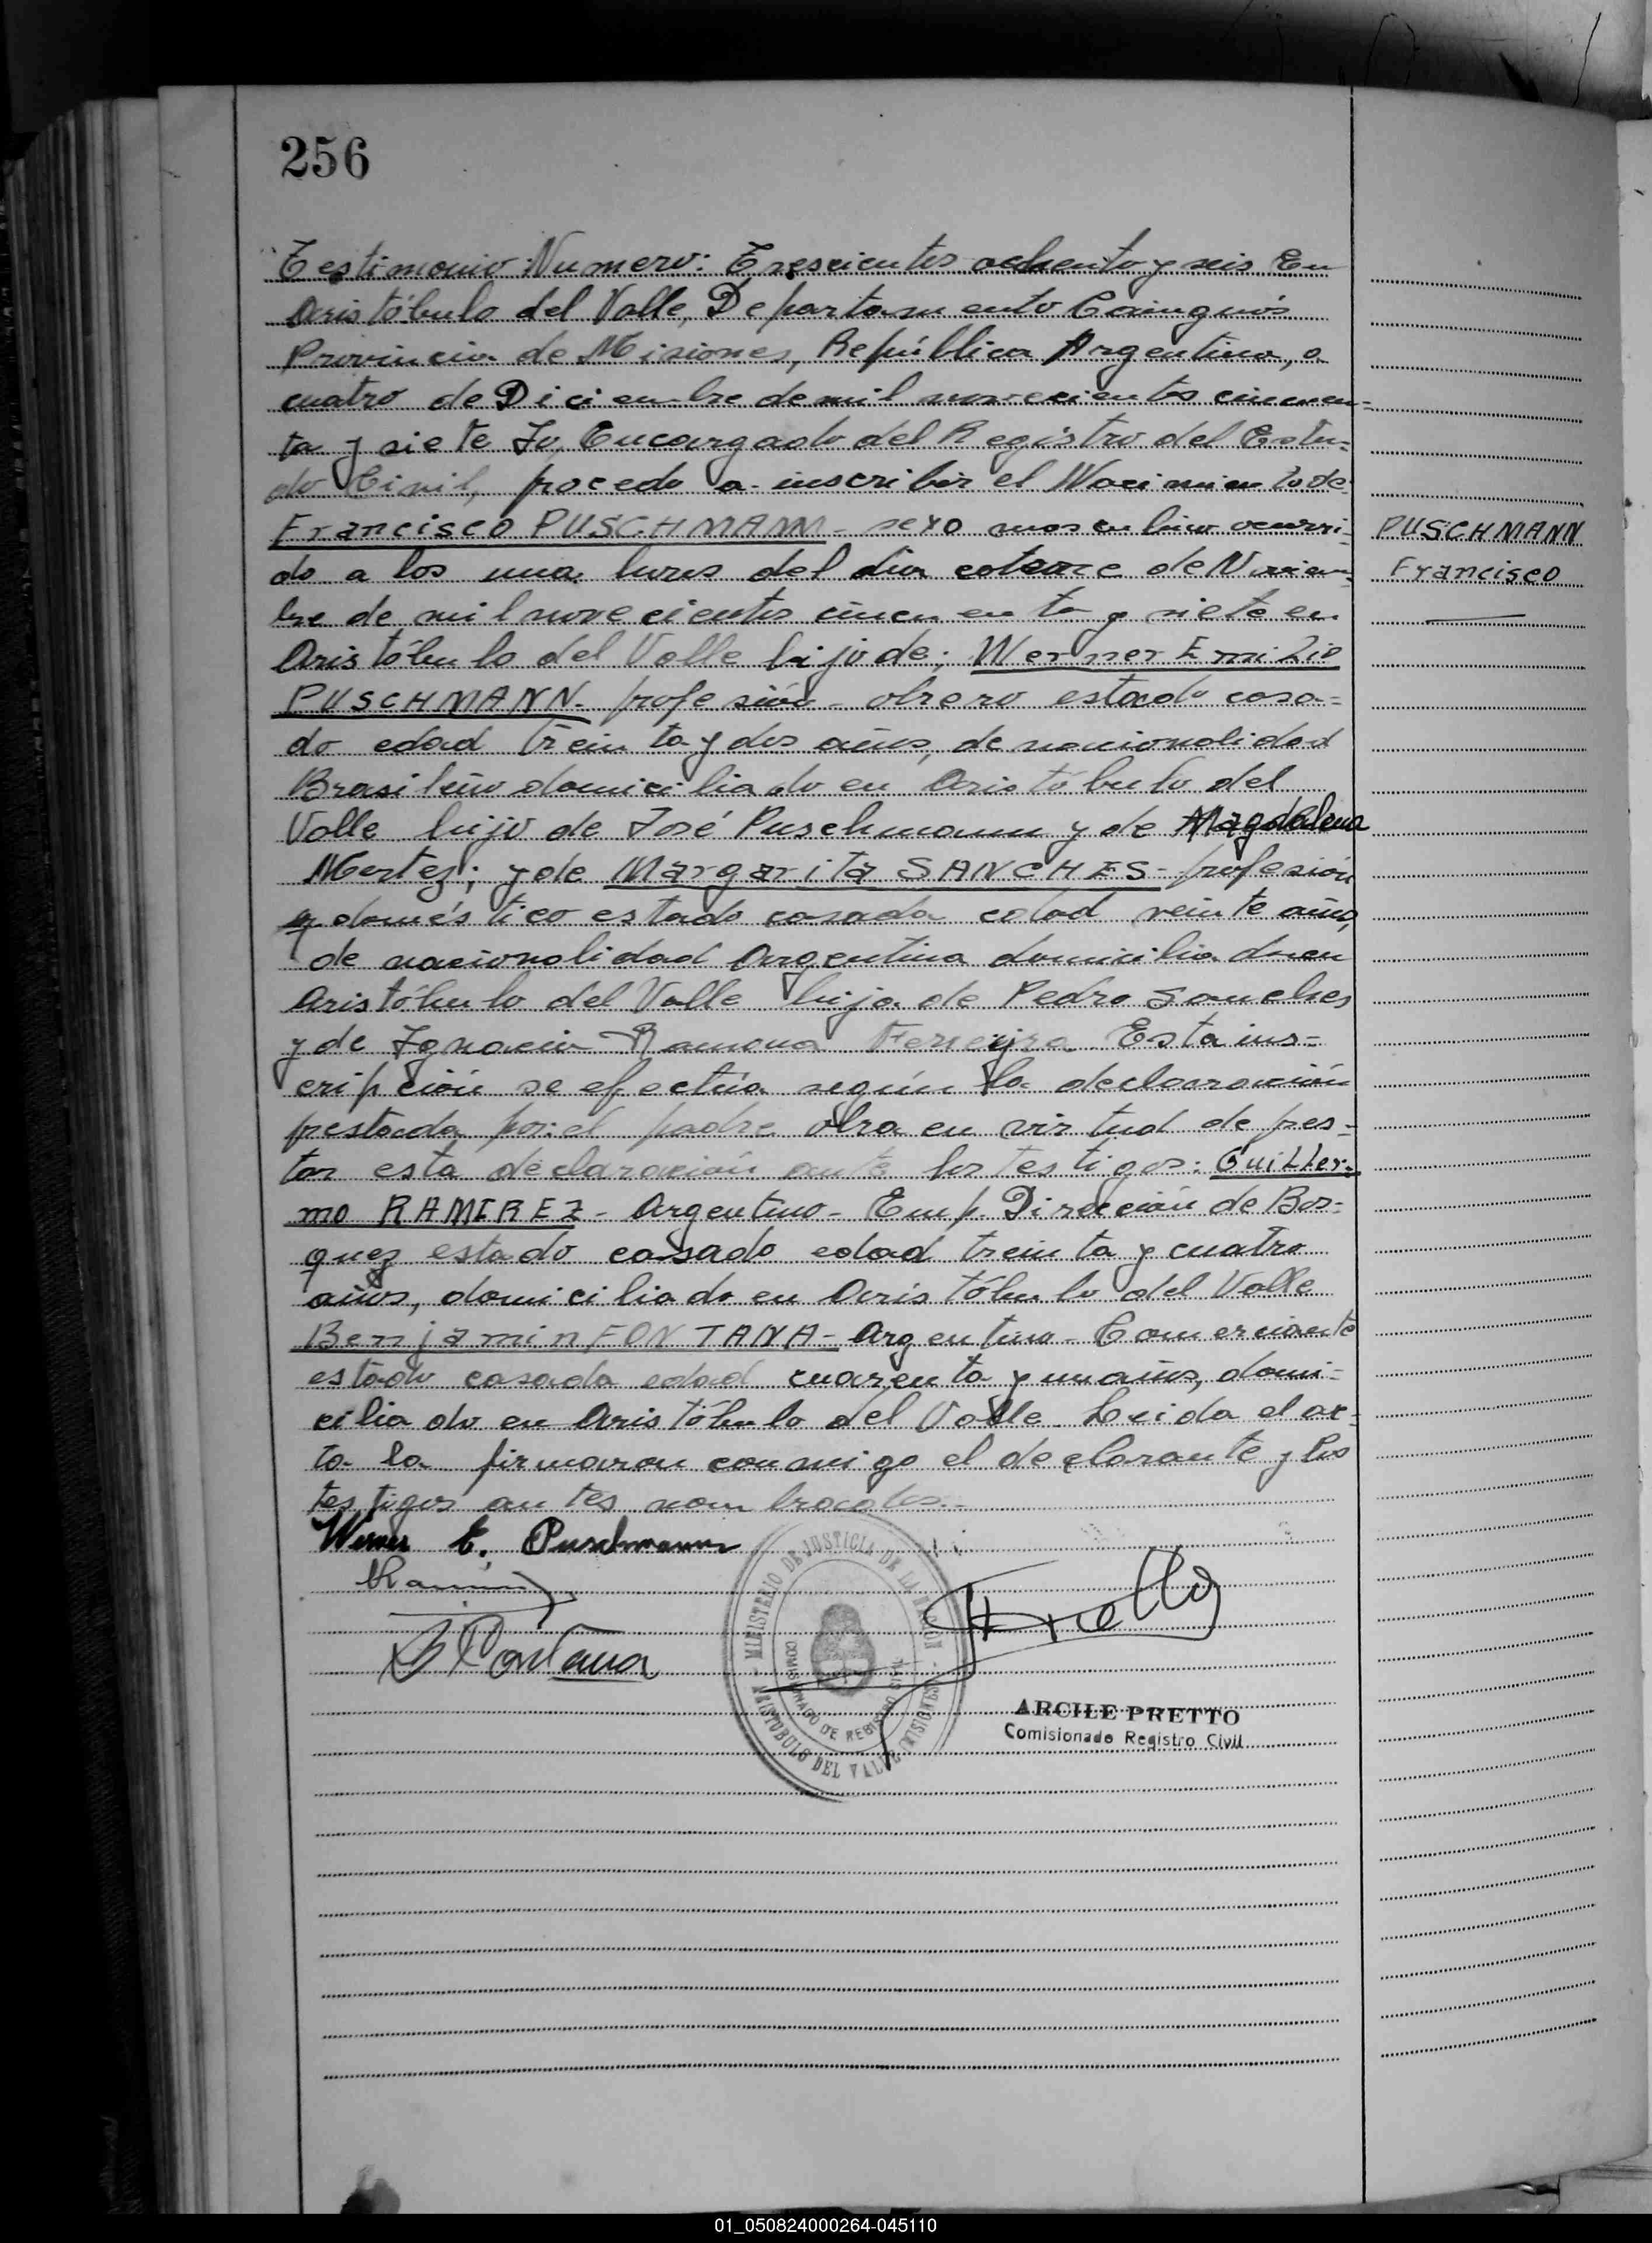 256
Testimonio Numero: Trescientos ochenta y seis En
Aristóbulo del Valle, Departamento Cainguás
Provincia de Misiones, República Argentina, a
cuatro de Diciembre de mil novecientos cincuen=
ta y siete Yo, Encargado del Registro del Esta=
do Civil, procedo a inscribir el Nacimiento de
Francisco PUSCHMANN - sexo masculino ocurri=
PUSCHMANN
do a las una horas del día catorce de Noviem=
Francisco
bre de mil novecientos cincuenta y siete en
Aristóbulo del Valle hijo de; Werner Emilio
PUSCHMANN - profesión - obrero estado casa=
do edad treinta y dos años, de nacionalidad
Brasileño domiciliado en Aristóbulo del
Valle hijo de José Puschmann y de Magdalena
Mertez; y de Margarita SANCHES - profesión
q. doméstico estado casada edad veinte años,
de nacionalidad Argentina domiciliada en
Aristóbulo del Valle hija de Pedro Sanches
y de Ignacia Ramona Ferreyra Esta ins=
cripción se efectúa según la declaración
prestada por: el padre obra en virtud de pres=
tar esta declaración ante los testigos: Guiller=
mo RAMIREZ - Argentino - Emp. Dirección de Bos=
quez estado casado edad treinta y cuatro
años, domiciliado en Aristóbulo del Valle
Benjamin FONTANA - Argentino - Comerciante
estado casado edad cuarenta y un años, domi=
ciliado en Aristóbulo del Valle. Leida el ac=
ta la firmaron conmigo el declarante y los
testigos antes nombrados.-
Werner E. Puschmann
MINISTERIO DE JUSTICIA DE LA NACIÓN
COMISIONADO DE REGISTRO CIVIL
ARISTOBULO DEL VALLE (MISIONES)
B Fontana
ARCILE PRETTO
Comisionado Registro Civil
01_050824000264-045110